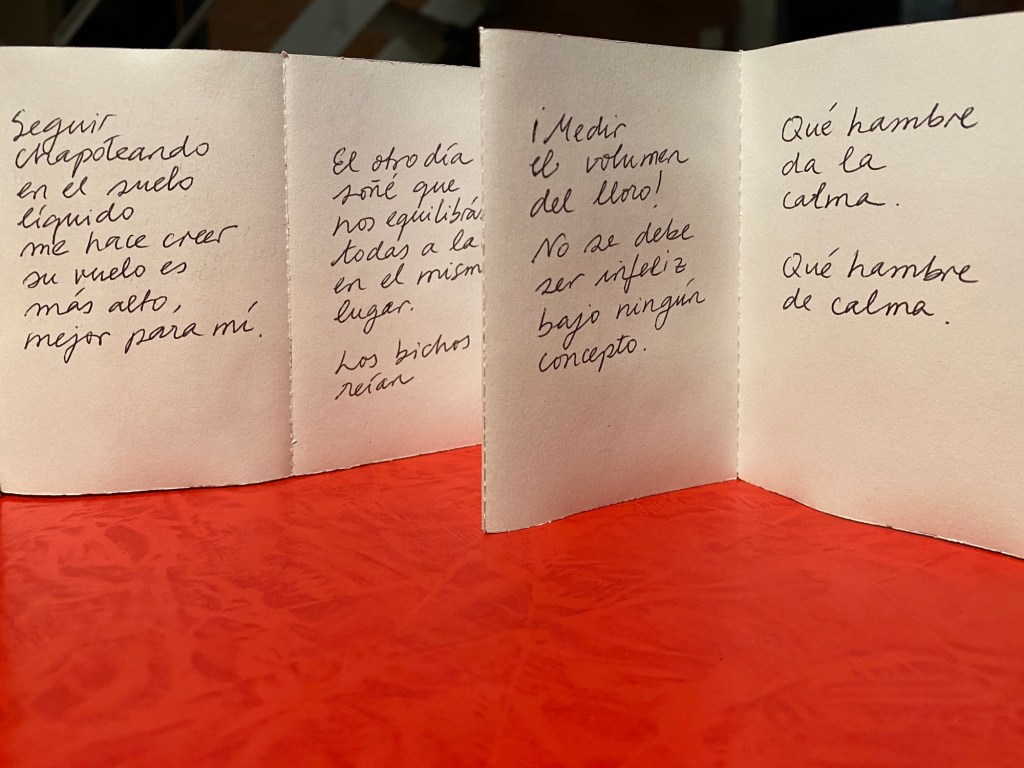 Seguir
chapoteando
en el suelo
líquido
me hace creer
su vuelo es
más alto,
mejor para mí.
El otro día
soñé que
nos equilibrá
todas a la
en el mism
lugar.
Los bichos
reían
¡Medir
el volumen
del lloro!
No se debe
ser infeliz
bajo ningún
concepto.
Qué hambre
da la
calma.
Qué hambre
de calma.